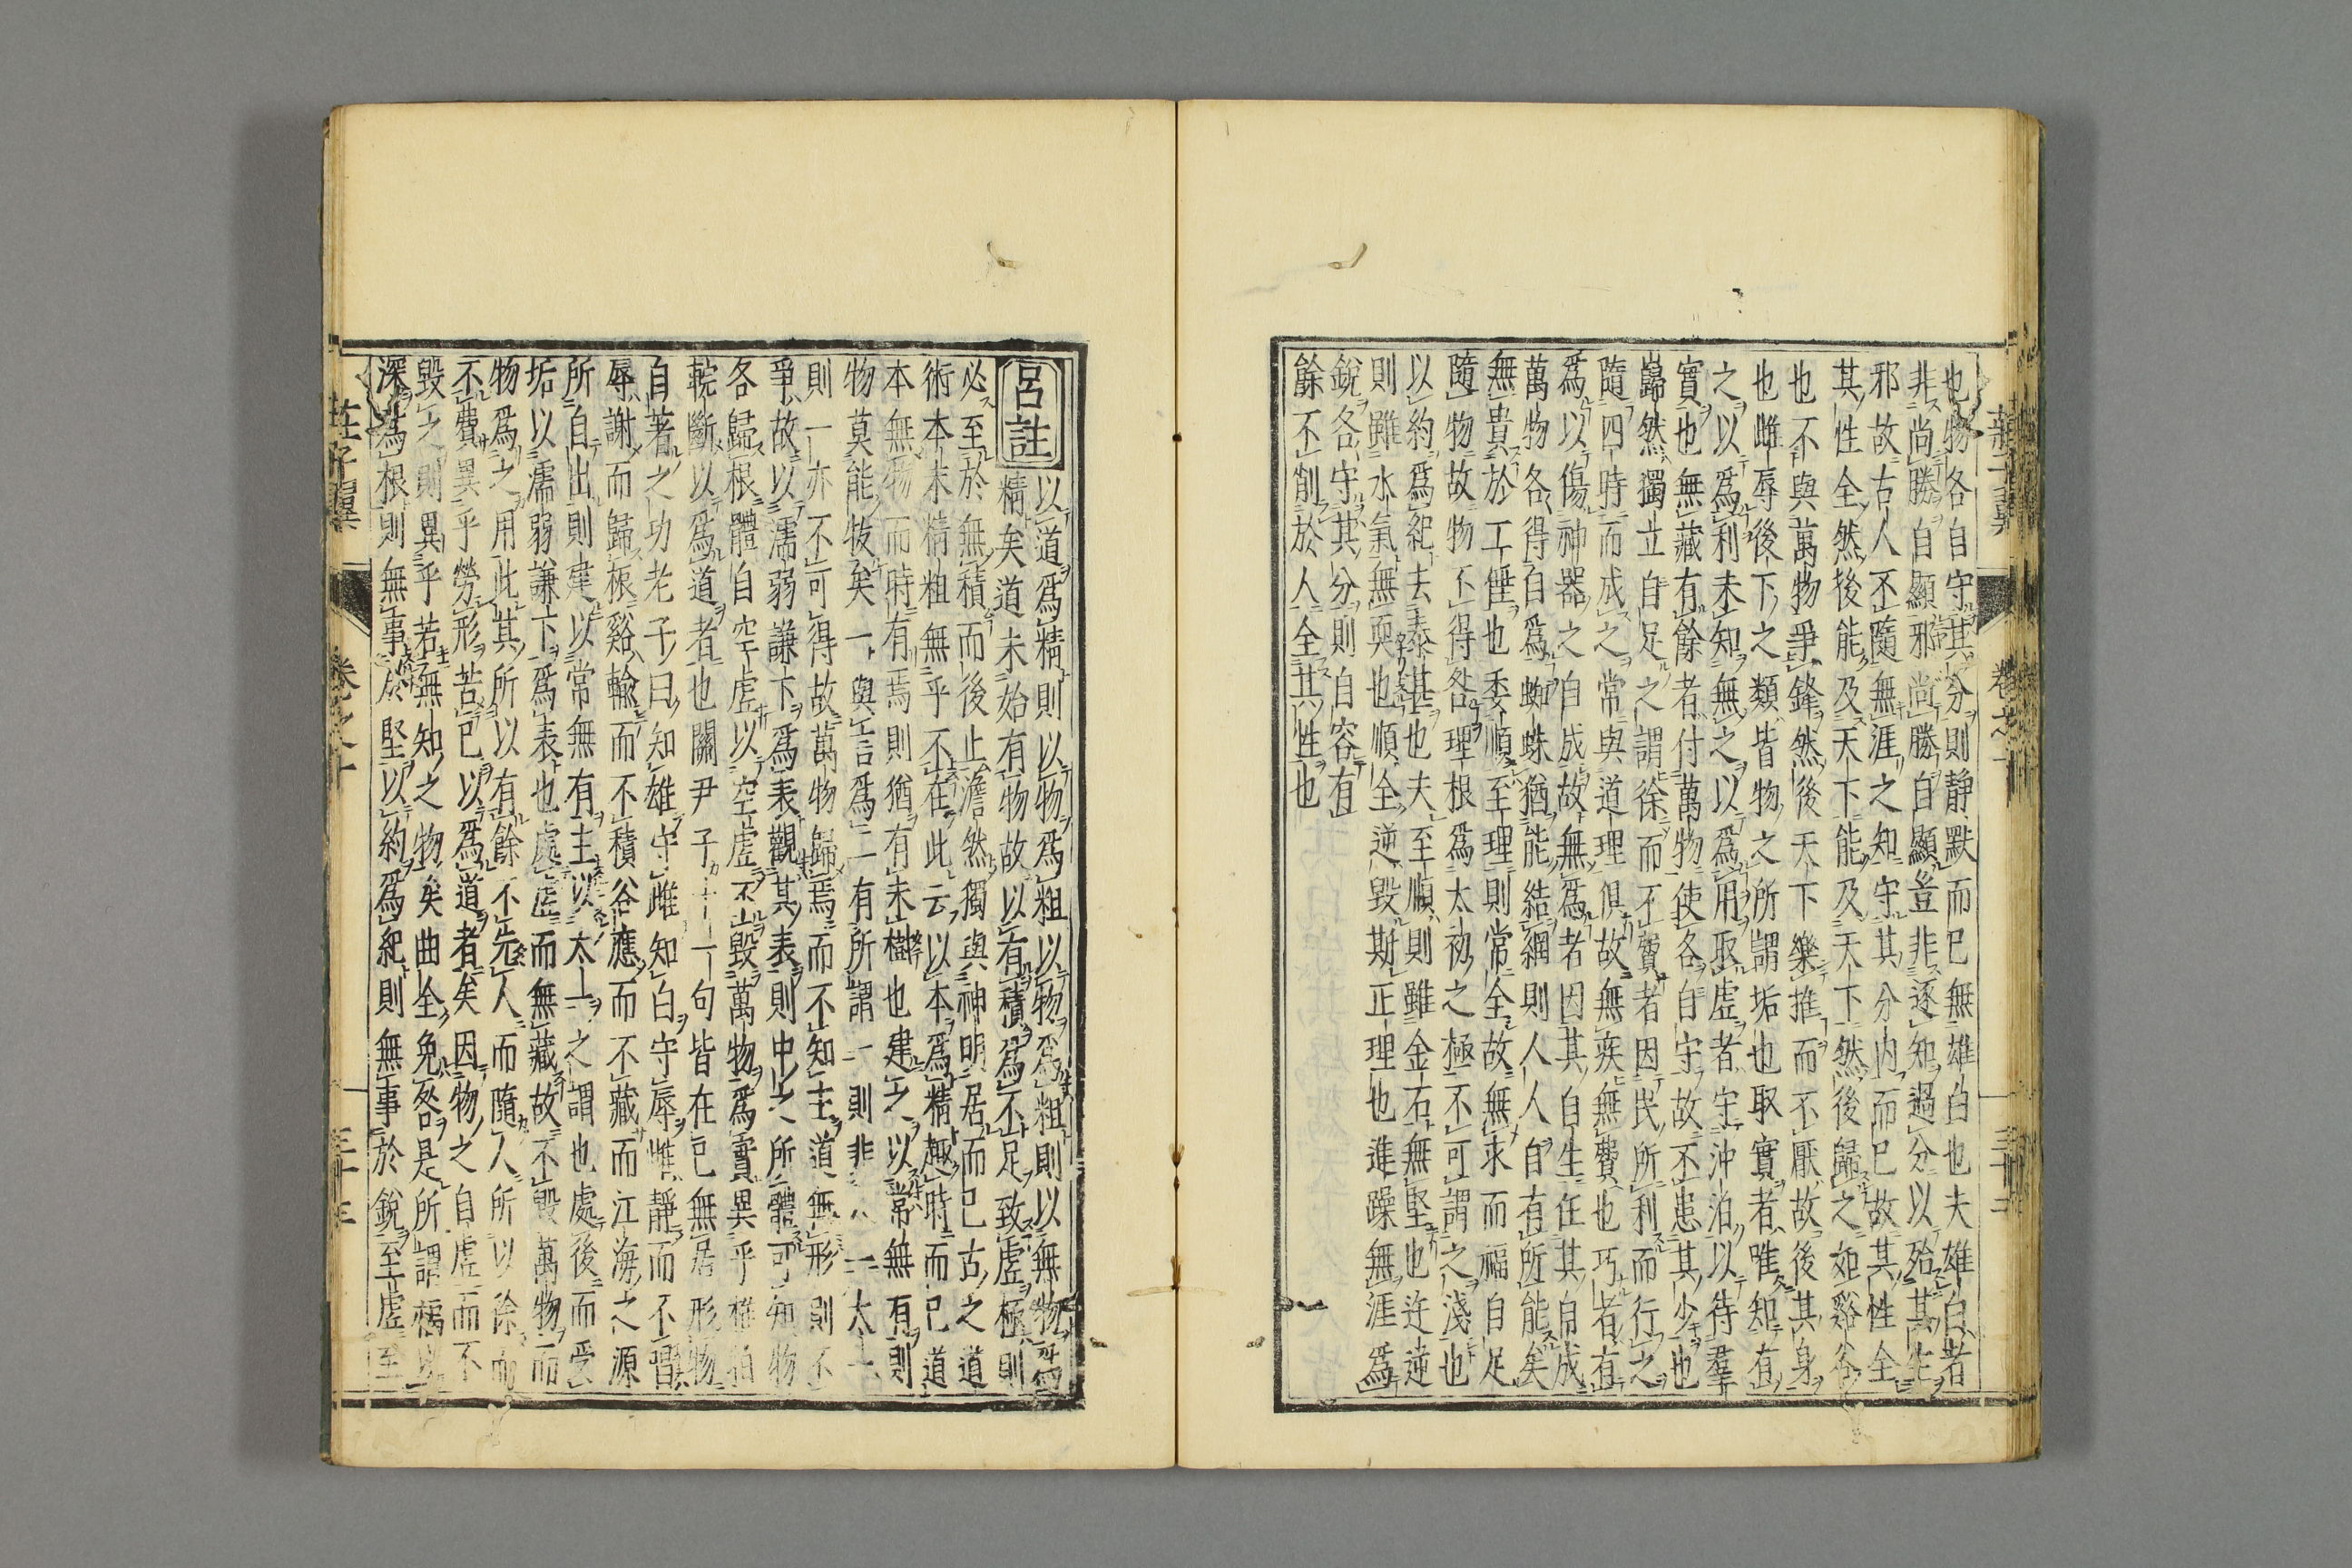 也物各自守其分則靜默而已無雄白也夫雄白者
非尚勝自顯邪尚勝自顯豈非逐知過分以殆其生
邪故古人不隨無涯之知守其分內而已故其性全
其性全然後能及天下能及天下然後歸之如谿谷
也不與萬物爭鋒然後天下樂推而不厭故後其身
也雌辱後下之類皆物之所謂垢也取實者唯知有
之以爲利未知無之以爲用取虛者守沖泊以待羣
實也無藏有餘者付萬物使各自守故不患其少也
巋然獨立自足之謂徐而不費者因民所利而行之
隨四時而成之常與道理俱故無疾無費也巧者有
爲以傷神器之自成故無爲者因其自生任其自成
萬物各得自爲蜘蛛猶能結網則人人自有所能矣
無貴於工倕也委順至理則常全故無求而福自足
隨物故物不得咎理根爲太初之極不可謂之淺也
以約爲紀去泰甚也夫至順則雖金石無堅也迕逆
則雖水氣無耎也順全逆毀斯正理也進躁無涯爲
銳各守其分則自容有
餘不削於人全其性也
莊子翼
卷之十
三十二
呂註
以道爲精則以物爲粗以物爲粗則以無物爲
精矣道未始有物故以有積爲不足致虛極則
必至於無積而後止澹然獨與神明居而已古之道
術本末精粗無乎不在此云以本爲精趣時而已道
本無物而時有焉則猶有未樹也建之以常無有則
物莫能拔矣一與言爲二有所謂一則非一太一
則一亦不可得故萬物歸焉而不知主道無形則不
爭故以濡弱謙下爲表觀其表則中之所體可知物
各歸根體自空虛以空虛不毀萬物爲實異乎椎拍
輐斷以爲道者也關尹子一句皆在己無居形物
自著之功老子曰知雄守雌知白守辱惟靜而不
辱謝而歸根谿輸而不積谷應而不藏而江海之源
所自出則建以常無有主以太一之謂也處後而受
垢以濡弱謙下爲表也處虛而無藏故不毀萬物而
物爲之用此其所以有餘不先人而隨人所以徐而
不費異乎勞形苦己以爲道者矣因物之自虛而不
毀之則異乎若無知之物矣曲全免咎是所謂福以
深爲根則無事於堅以約爲紀則無事於銳至虛至
莊子翼
卷之十
三十三